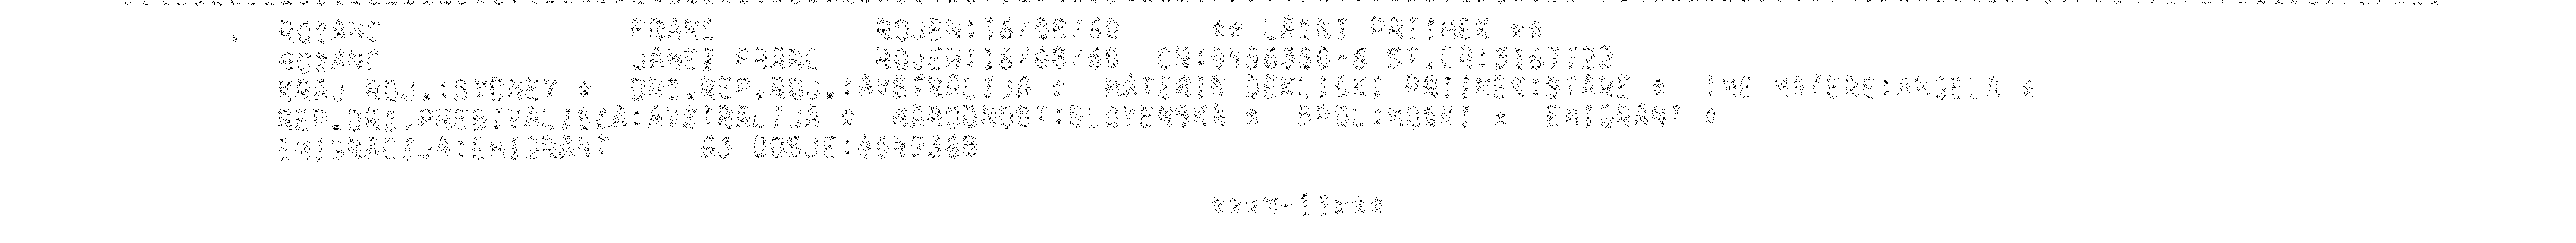 ROJANC FRANC ROJEN:16/08/60 ** LAZNI PRIIMEK **
ROJANC JANEZ FRANC ROJEN:16/08/60 CR:0456350-6 ST.CR:3167722
KRAJ ROJ.:SYDNEY * DRZ.REP.ROJ.:AVSTRALIJA * MATERIN DEKLISKI PRIIMEK:STARE * IME MATERE:ANGELA *
REP.DRZ.PREBIVALISCA:AVSTRALIJA * NARODNOST:SLOVENSKA * SPOL:MOSKI * EMIGRANT *
EMIGRACIJA:EMIGRANT 63 DOSJE:0049360
***M-13***